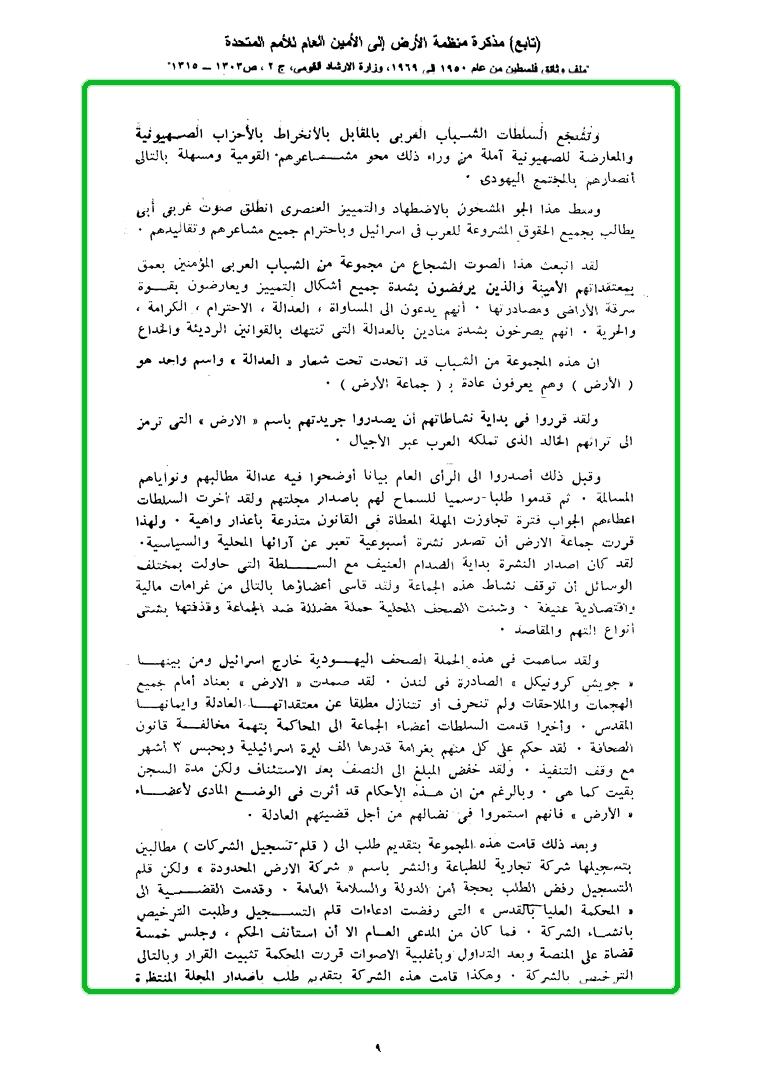 (تابع) مذكرة منظمة الأرض إلى الأمين العام للأمم المتحدة
"ملف وثائق فلسطين من عام ١٩٥٠ الى ١٩٦٩، وزارة الارشاد القومى، ج ٢ ، ص١٣٠٣ – ١٣١٥"
وتشجع السلطات الشباب العربى بالمقابل بالأنخراط بالأحزاب الصهيونية
والمعارضة للصهيونية آملة من وراء ذلك محو مشاعرهم القومية ومسهلة بالتالى
أنصارهم بالمجتمع اليهودى ٠
وسط هذا الجو المشحون بالاضطهاد والتمييز العنصرى انطلق صوت عربى أبى
يطالب بجميع الحقوق المشروعة للعرب فى اسرائيل وباحترام جميع مشاعرهم وتقاليدهم ٠
لقد انبعث هذا الصوت الشجاع من مجموعة من الشباب العربى المؤمنين بعمق
بمعتقداتهم الأمينة والذين يرفضون بشدة جميع أشكال التمييز ويعارضون بقوة
سرقة الأراضى ومصادرتها ٠ أنهم يدعون الى المساواة ، العدالة ، الاحترام ، الكرامة ،
والحرية ٠ انهم يصرخون بشدة منادين بالعدالة التى تنتهك بالقوانين الرديئة والخداع
ان هذه المجموعة من الشباب قد اتحدت تحت شعار « العدالة » واسم واحد هو
( الأرض ) وهم يعرفون عادة بـ ( جماعة الأرض ) ٠
ولقد قرروا فى بداية نشاطاتهم أن يصدروا جريدتهم باسم « الارض » التى ترمز
الى تراثهم الخالد الذى تملكه العرب عبر الأجيال ٠
وقبل ذلك أصدروا الى الرأى العام بيانا أوضحوا فيه عدالة مطالبهم ونواياهم
المسالمة ٠ ثم قدموا طلبا رسميا للسماح لهم باصدار مجلتهم ولقد أخرت السلطات
اعطاءهم الجواب فترة تجاوزت المهلة المعطاة فى القانون متذرعة بأعذار واهية ٠ ولهذا
قررت جماعة الارض أن تصدر نشرة أسبوعية تعبر عن آرائها المحلية والسياسية٠
لقد كان اصدار النشرة بداية الصدام العنيف مع السلطة التى حاولت بمختلف
الوسائل أن توقف نشاط هذه الجماعة ولقد قاسى أعضاؤها بالتالى من غرامات مالية
واقتصادية عنيفة ٠ وشنت الصحف المحلية حملة مضللة ضد الجماعة وقذفتها بشتى
أنواع التهم والمقاصد ٠
ولقد ساهمت فى هذه الحملة الصحف اليهودية خارج اسرائيل ومن بينها
« جويش كرونيكل » الصادرة فى لندن ٠ لقد صمدت « الارض » بعناد أمام جميع
الهجمات والملاحقات ولم تنحرف أو تتنازل مطلقا عن معتقداتها العادلة وايمانها
المقدس ٠ وأخيرا قدمت السلطات أعضاء الجماعة الى المحاكمة بتهمة مخالفة قانون
الصحافة ٠ لقد حكم على كل منهم بغرامة قدرها الف ليرة اسرائيلية وبحبس ٣ أشهر
مع وقف التنفيذ ٠ ولقد خفض المبلغ الى النصف بعد الاستئناف ولكن مدة السجن
بقيت كما هى ٠ وبالرغم من ان هذه الأحكام قد أثرت فى الوضع المادى لأعضاء
« الأرض » فانهم استمروا فى نضالهم من أجل قضيتهم العادلة ٠
وبعد ذلك قامت هذه المجموعة بتقديم طلب الى ( قلم تسجيل الشركات ) مطالبين
بتسجيلها شركة تجارية للطباعة والنشر باسم « شركة الارض المحدودة » ولكن قلم
التسجيل رفض الطلب بحجة أمن الدولة والسلامة العامة ٠ وقدمت القضية الى
« المحكمة العليا بالقدس » التى رفضت ادعاءات قلم التسجيل وطلبت الترخيص
بانشاء الشركة ٠ فما كان من المدعى العام الا أن استأنف الحكم ، وجلس خمسة
قضاة على المنصة وبعد التداول وبأغلبية الاصوات قررت المحكمة تثبيت القرار وبالتالى
الترخيص بالشركة ٠ وهكذا قامت هذه الشركة بتقديم طلب باصدار المجلة المنتظرة
٩